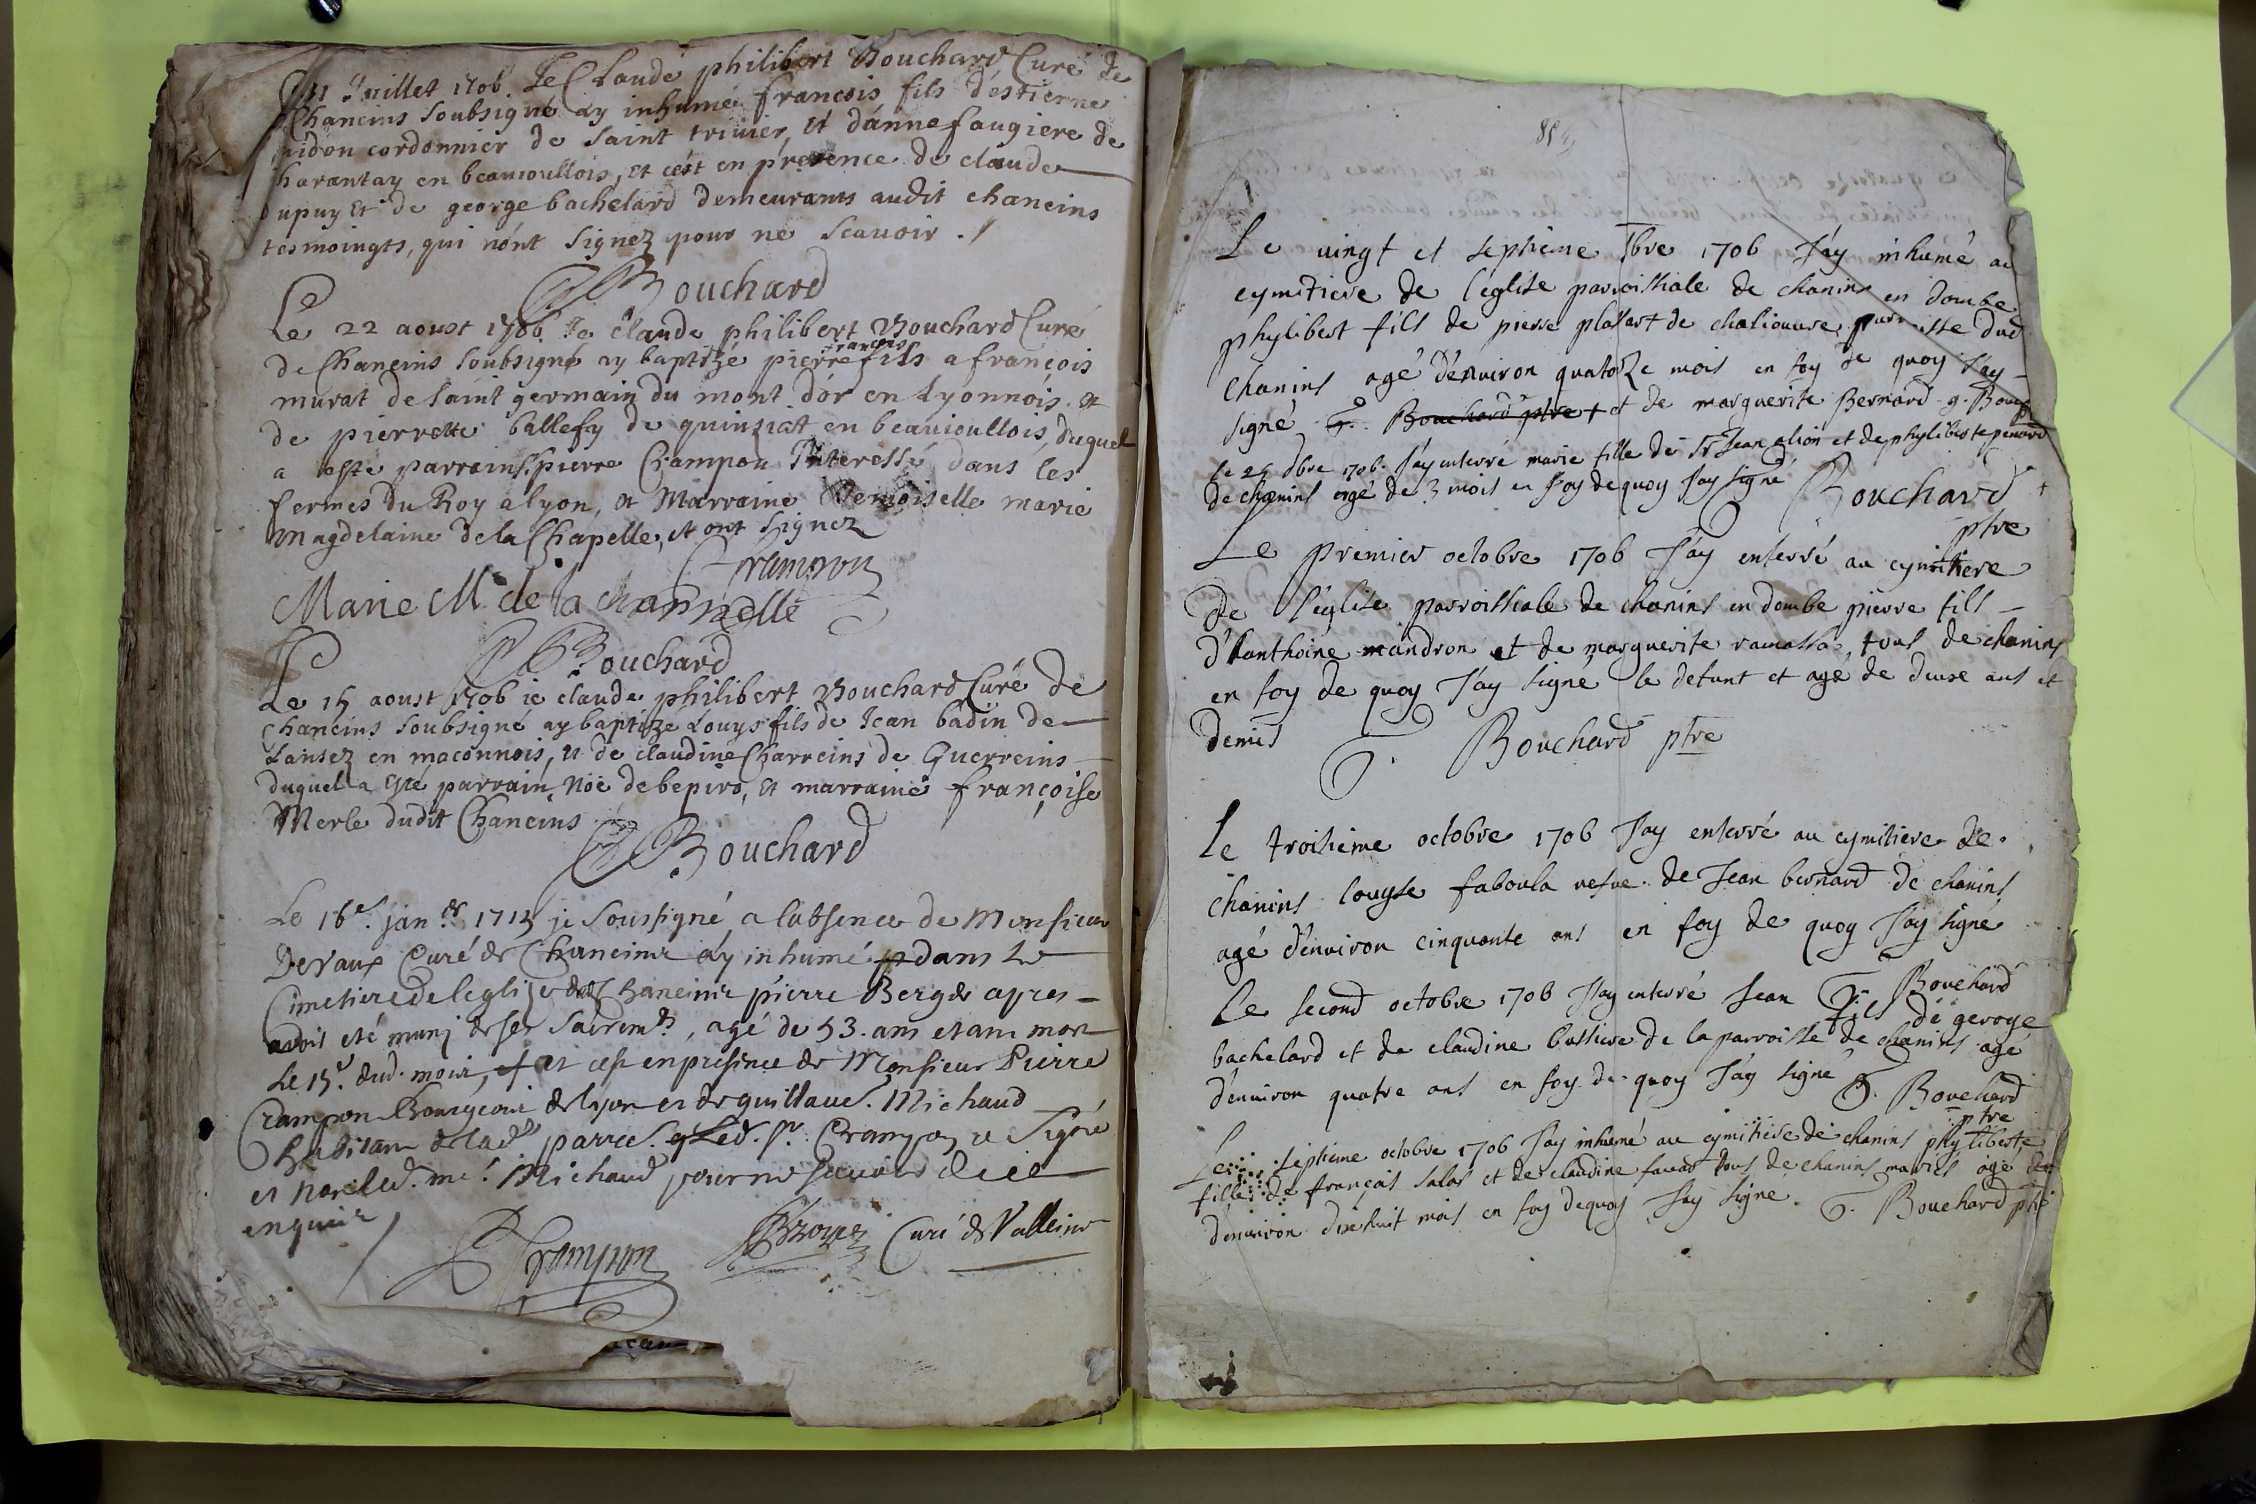 11 Juillet 1706. Je Claude philibert Bouchard Curé de
Chaneins soubsigné ay inhumé francois fils d'estienne
cordonnier de saint trivier, et d'anne faugiere de
harantay en beauioullois, et c'est en presence de claude
dupuy et de george bachelard demeurants audit chaneins
tesmoingts, qui n'ont signez pour ne scauoir ./
Bouchard
Le 22 aoust 1706 Je Claude philibert Bouchard Curé
francois
de Chaneins soubsigné ay baptizé pierre fils a françois
murat de saint germain du mont d'or en Lyonnois et
de pierrette ballefy de quinsiat en beauioullois, duquel
a esté parrain Sr. pierre Crampon Interessé dans les
fermes du Roy a lyon, et Marraine Demoiselle marie
magdelaine de la Chapelle, et ont signez
Crampon
Marie M. de la chappelle
Bouchard
Le 15 aoust 1706 ie claude philibert Bouchard Curé de
Chaneins soubsigné ay baptizé Louys fils de Jean badin de
Lansez en maconnois, et de claudine Charreins de Guerreins
duquel a esté parrain, Noë debepiro, et marraine françoise
Merle dudit Chaneins
Bouchard
Le 16e. janer. 1713 je soussigné a labsence de Monsieur
Devaux Curé de Chaneins ay inhumé dans le
Cimetiere de leglize de Chaneins pierre Berger apres
avoir eté muni de ses sacremts, agé de 53. ans etant mort
le 15e. dud. mois, et cest en presence de Monsieur Pierre
Crampon Bourgeois de lyon et de guillaue. Michaud
habitant de lad. parrse. Led. sr. Crampon a signé
et non led. me. Michaud pour ne scauoir de ce
enquis /
Crampon Curé de Valleins
85
Le vingt et septieme 7bre 1706 J'ay inhumé au
cymitiere de l'eglise parroissiale de chanins en dombe
phylibert fils de pierre plasart de chaliouure parroisse dud
chanins agé d'enuiron quatorze mois en foy de quoy J'ay
signé Bouchard ptre + et de marguerite Bernard g. Bouch
le 25 1706. J'ay enterré marie fille de Sr Jean alion et de phyliberte penard
de chanins agé de 3 mois en foy de quoy J'ay signé Bouchard
ptre
Le premier octobre 1706 J'ay enterré au cymitiere
De l'eglise parroissiale de chanins en dombe pierre fils
d'hanthoine mandron et de marguerite ramassa, tous de chanins
en foy de quoy J'ay signé le defunt et agé de deuse ans et
demis G. Bouchard ptre
Le troisieme octobre 1706 J'ay enterré au cymitiere de
chanins louyse faboula vefve de Jean bernard de chanins
agé d'enuiron cinquante ans en foy de quoy J'ay signé
G. Bouchard
Le second octobre 1706 J'ay enterré Jean fils de george
bachelard et de claudine bussiere de la parroisse de chanins agé
d'enuiron quatre ans en foy de quoy J'ay signé G. Bouchard
ptre
Le septieme octobre 1706 J'ay inhumé au cymitiere de chanins phyliberte
fille de françois salas et de claudine tous de chanins mariés agé
d'enuiron dixhuit mois en foy dequoy J'ay signé. G. Bouchard ptre